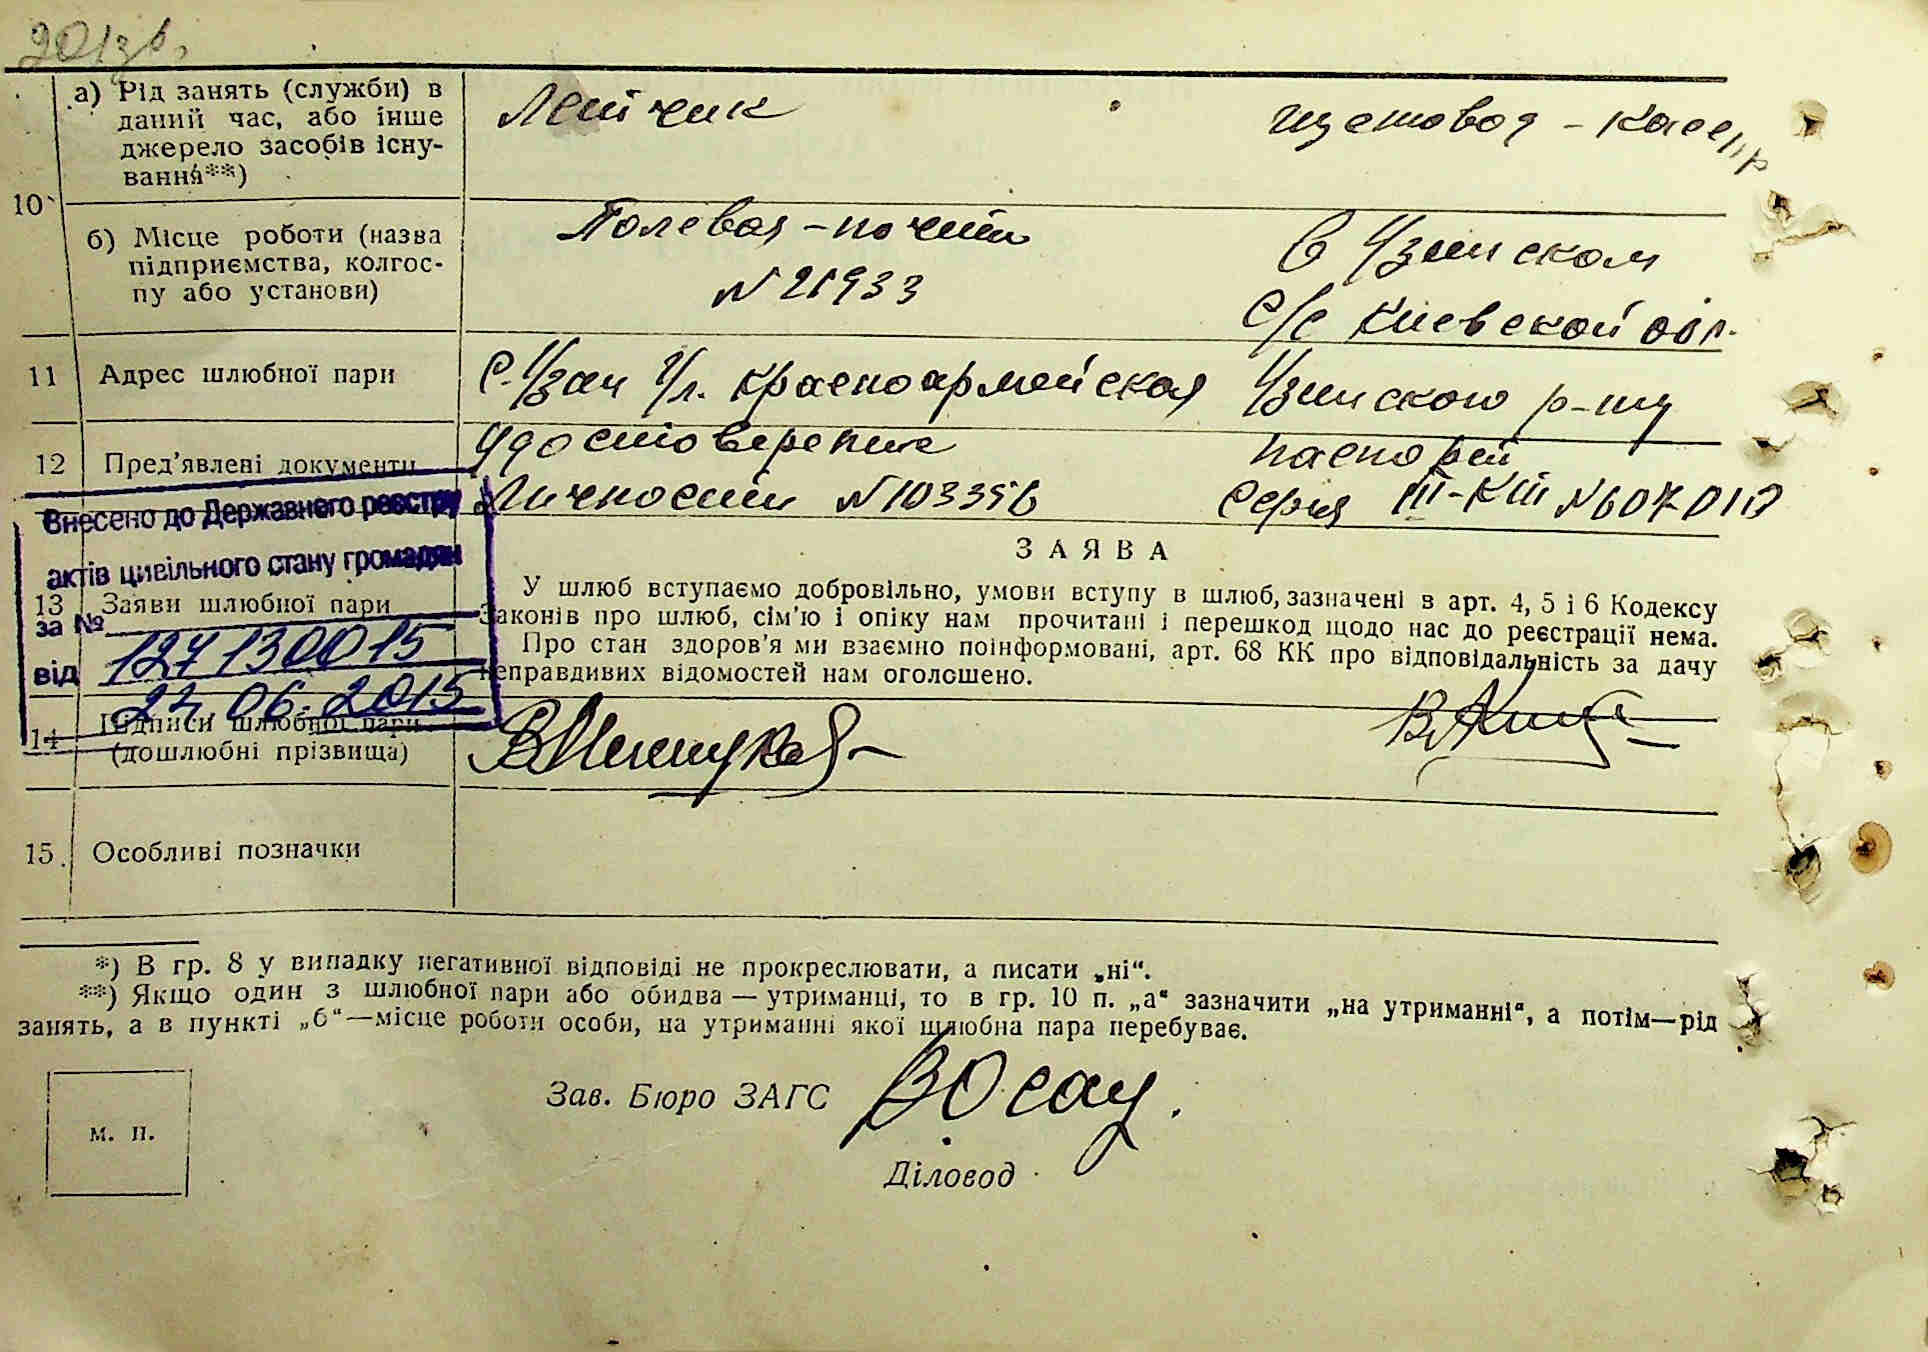 а) Рід занять (служби) в
даний час, або інше
джерело засобів існу-
вання**)
Летчик
Щетовод - Кассир
10
б) Місце роботи (назва
підприємства, колгос-
пу або установи)
Полевая - почта
N 21933
В Узинском
С/с Киевской обл.
11 Адрес шлюбної пари
С. Узин Ул. Красноармейская Узинского р-ну
12 Пред'явлені документи
Удостоверение
Личности N 103356
паспорт
Серия III-КШ N 607010
Внесено до Державного реєстру
актів цивільного стану громадян
за №
1271300 15
від
24. 06. 2015
13 Заяви шлюбної пари
ЗАЯВА
У шлюб вступаємо добровільно, умови вступу в шлюб, зазначені в арт. 4, 5 і 6 Кодексу
Законів про шлюб, сім'ю і опіку нам прочитані і перешкод щодо нас до реєстрації нема.
Про стан здоров'я ми взаємно поінформовані, арт. 68 КК про відповідальність за дачу
неправдивих відомостей нам оголошено.
14 Підписи шлюбної пари
(дошлюбні прізвища)
15. Особливі позначки
*) В гр. 8 у випадку негативної відповіді не прокреслювати, а писати „ні“.
**) Якщо один з шлюбної пари або обидва — утриманці, то в гр. 10 п. „а“ зазначити „на утриманні“, а потім—рід
занять, а в пункті „б“—місце роботи особи, на утриманні якої шлюбна пара перебуває.
м. п.
Зав. Бюро ЗАГС
Діловод